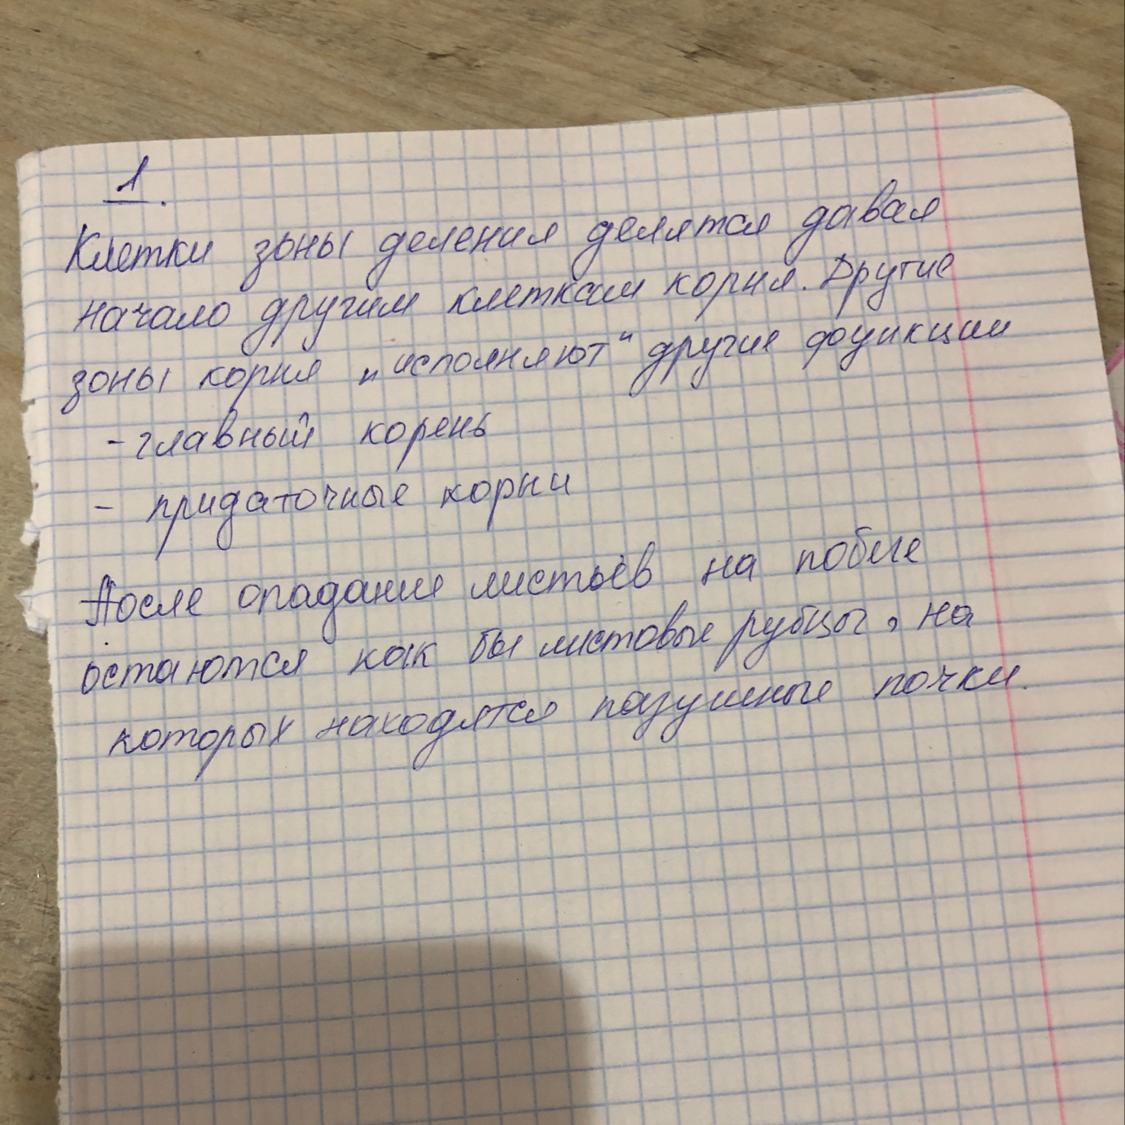 1.
Клетки зоны деления делятся давая
начало другим клеткам корня. Другие
зоны корня „исполняют“ другие фоункции
- главный корень
- придаточные корни
После опадание листьёв на побеге
остаются как бы листовые рубцы, на
которых находятся пазушные почки.